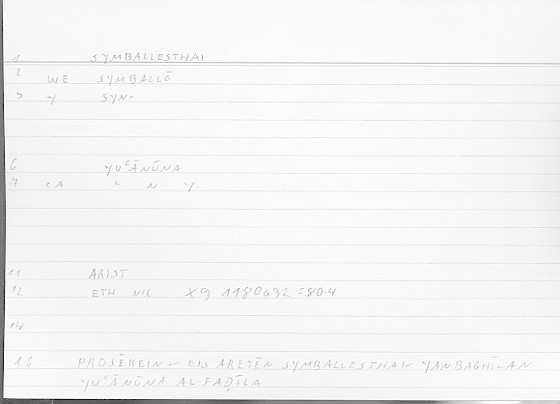 1 SYMBALLESTHAI
2 WE SYMBALLŌ
3 Y SYN-
6 YUʿĀNŪNA
7 CA ʿ N Y
11 ARIST
12 ETH NIC X9 1180a32 = 80.4
14
16 PROSĒKEIN ~ EIS ARETĒN SYMBALLESTHAI ~ YANBAGHĪ ~ AN
YUʿĀNŪNA AL-FAḌĪLA